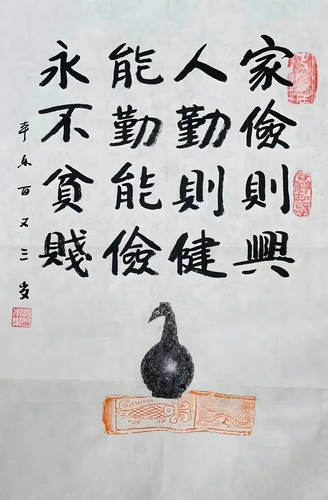 家儉則興
人勤則健
能勤能儉
永不貧賤
百又三歲